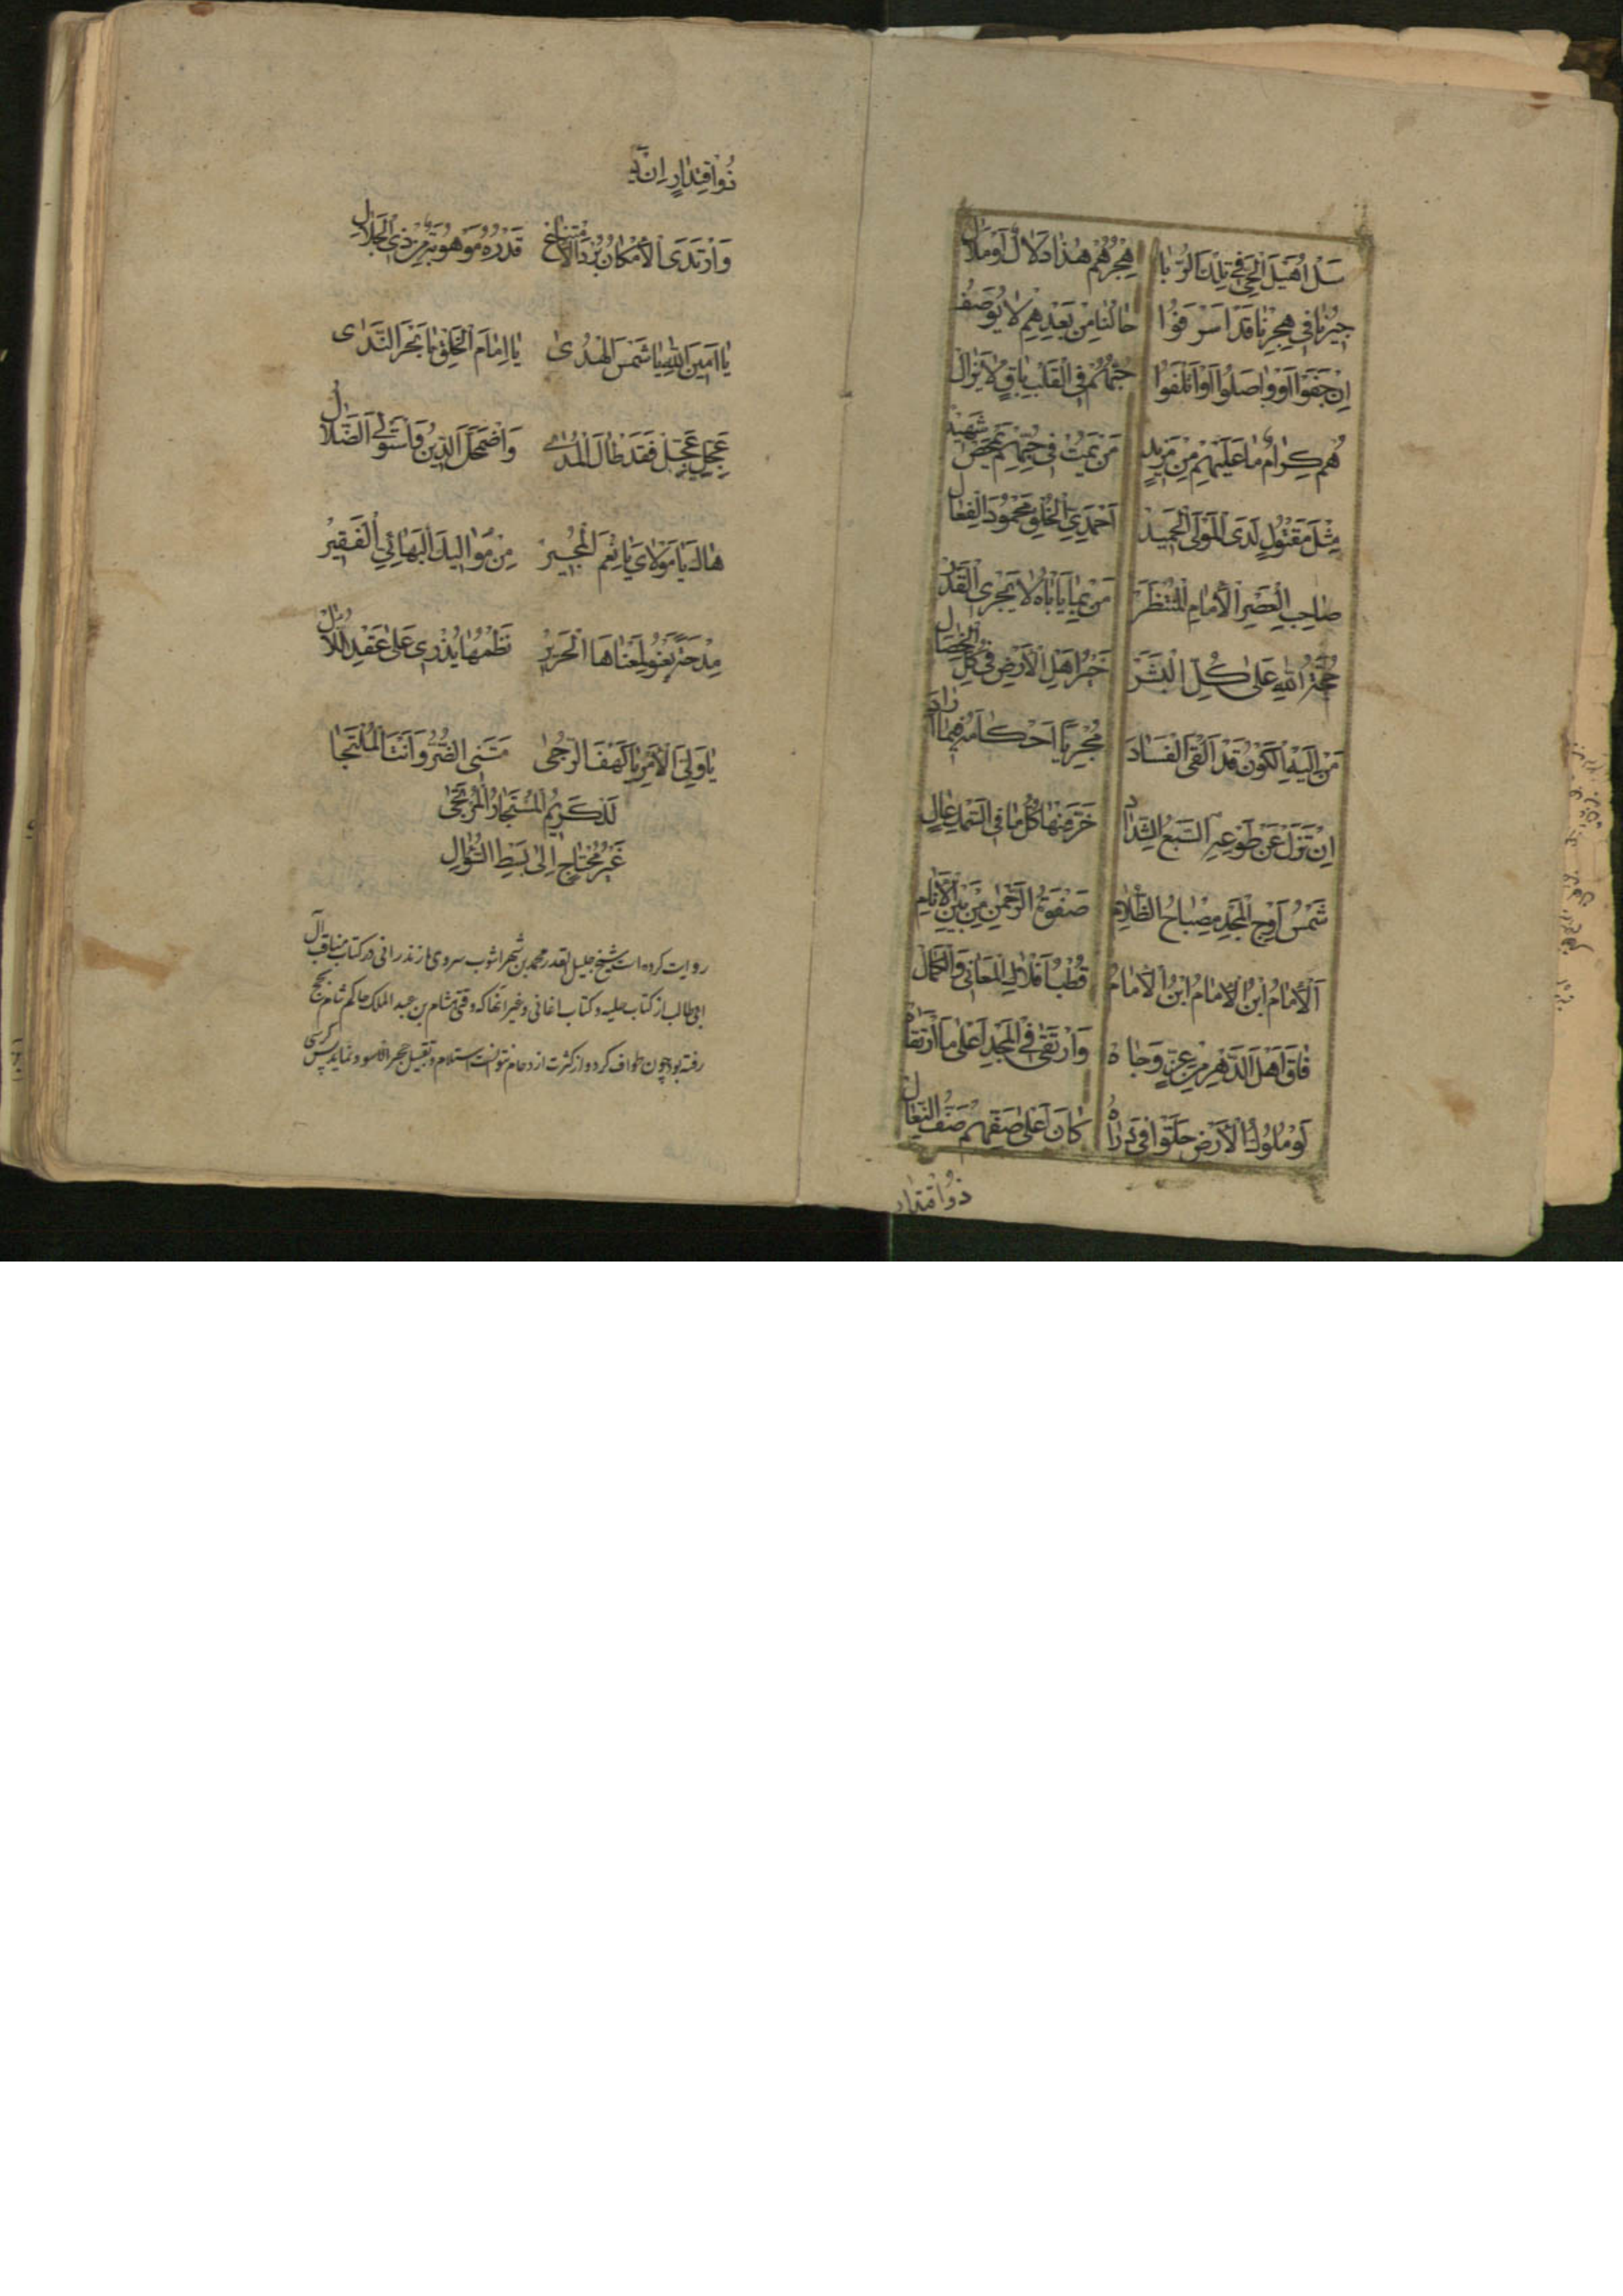 سَلْ اُهَيْلَ الْحَيِّ فِي تِلْكَ الرُّبَا هِجْرُهُمْ هٰذَا دَلَالٌ اَوْ مَلَالْ
جِيْرُنَا فِي هِجْرِنَا قَدْ اَسْرَفُوْا حَالُنَا مِنْ بَعْدِهِمْ لَا يُوْصَفُ
اِنْ جَفَوْا اَوْ وَاصَلُوْا اَوْ اَتْلَفُوْا حُبُّهُمْ فِي الْقَلْبِ بَاقٍ لَا يَزَالْ
هُمْ كِرَامٌ مَا عَلَيْهِمْ مِنْ مَزِيْدٍ مَنْ يَمُتْ فِي حُبِّهِمْ يَمْضِ شَهِيْدْ
مِثْلَ مَقْتُوْلٍ لَدَى الْمَوْلَى الْحَمِيْدْ اَحْمَدِيِّ الْخُلْقِ مَحْمُوْدِ الْفِعَالْ
صَاحِبِ الْعَصْرِ الْاِمَامِ الْمُنْتَظَرْ مَنْ بِمَا يَأْبَاهُ لَا يَجْرِي الْقَدَرْ
حُجَّةُ اللهِ عَلٰى كُلِّ الْبَشَرْ خَيْرُ اَهْلِ الْاَرْضِ فِي كُلِّ الْخِصَالْ
مَنْ اِلَيْهِ الْكَوْنُ قَدْ اَلْقَى الْقِيَادَ مُجْرِيًا اَحْكَامَهُ فِيْمَا اَرَادَ
اِنْ تَزُلْ عَنْ طَوْعِهِ السَّبْعُ الشِّدَادْ خَرَّ مِنْهَا كُلُّ مَا فِي السَّمْكِ عَالٍ
شَمْسُ اَوْجِ الْمَجْدِ مِصْبَاحُ الظَّلَامِ صَفْوَةُ الرَّحْمٰنِ مِنْ بَيْنِ الْاَنَامِ
اَلْاِمَامُ ابْنُ الْاِمَامِ ابْنُ الْاِمَامْ قُطْبُ اَفْلَاكِ الْمَعَانِي وَالْكَمَالْ
فَاقَ اَهْلَ الدَّهْرِ مِنْ عِزٍّ وَجَاهْ وَارْتَقٰى فِي الْمَجْدِ اَعْلٰى مَا ارْتَقَاهْ
لَوْ مُلُوْكُ الْاَرْضِ حَلُّوْا فِي ذَرَاهُ كَانَ اَعْلٰى صَفِّهِمْ صَفَّ النِّعَالْ
ذُو اقْتِدَار
ذُو اقْتِدَارٍ اِنْ
وَارْتَدَى الْاِمْكَانُ بُرْدَ الْاِمْتِنَاعْ قُدْرَةٌ مَوْهُوْبَةٌ مِنْ ذِي الْجَلَالِ
يَا اَمِيْنَ اللهِ يَا شَمْسَ الْهُدٰى يَا اِمَامَ الْخَلْقِ يَا بَحْرَ النَّدٰى
عَجِّلَنْ عَجِّلْ فَقَدْ طَالَ الْمُدٰى وَاضْمَحَلَّ الدِّيْنُ وَاسْتَوْلَى الضَّلَالْ
هَاكَ يَا مَوْلَايَ يَا نِعْمَ الْمُجِيْرْ مِنْ مَوَالِيْكَ الْبَهَائِيِّ الْفَقِيْرْ
مِدْحَةً يَعْنُوْ لِمَعْنَاهَا الْجَرِيْرْ نَظْمُهَا يُذْرِي عَلٰى عِقْدِ اللَّآلْ
يَا وَلِيَّ الْاَمْرِ يَا كَهْفَ الرَّجٰى مَسَّنِيَ الضُّرُّ وَاَنْتَ الْمُلْتَجَا
لَذِكَرِيْمُ الْمُسْتَجَارُ الْمُرْتَجٰى
غَيْرُ مُحْتَاجٍ اِلٰى بَسْطِ السُّؤَالِ
روایت کرده است شیخ جلیل القدر محمد بن شهراشوب سروی مازندرانی در کتاب مناقب آل
ابی طالب از کتاب حلیه و کتاب اغانی و غیر آنها که وقتی هشام بن عبد الملک حاکم شام بحج
رفته بود چون طواف کرد و از کثرت ازدحام نتوانست استلام و تقبیل حجر الاسود نماید پس کرسی